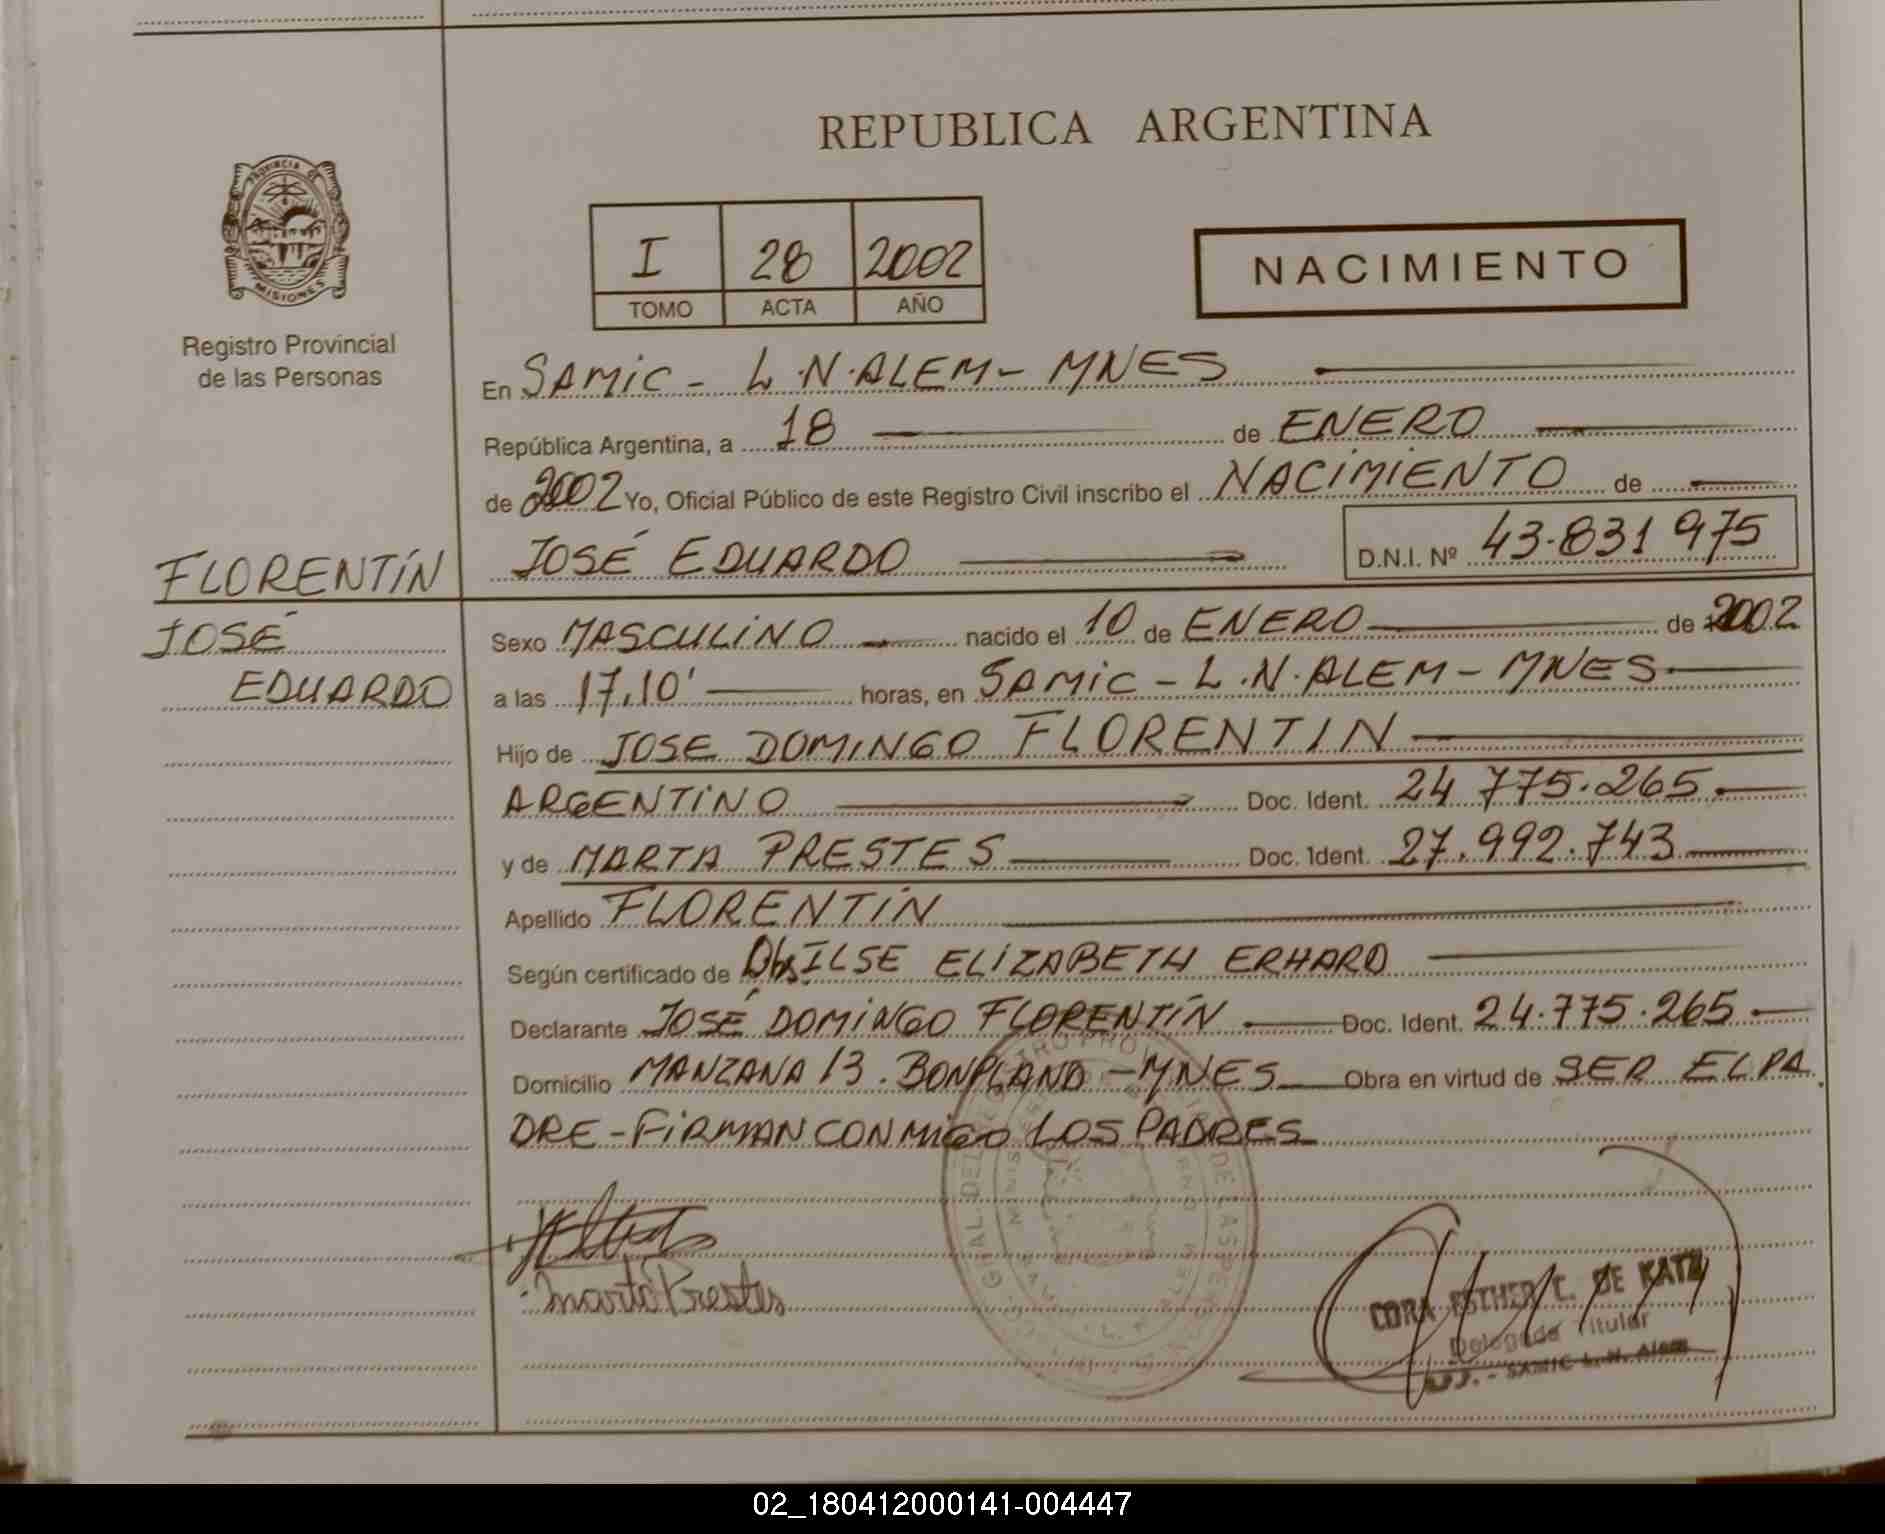 REPUBLICA ARGENTINA
PROVINCIA DE
MISIONES
Registro Provincial
de las Personas
I 28 2002
TOMO ACTA AÑO
NACIMIENTO
En SAMIC - L.N.ALEM - MNES
República Argentina, a 18 de ENERO
de 2002 Yo, Oficial Público de este Registro Civil inscribo el NACIMIENTO de
JOSÉ EDUARDO D.N.I. Nº 43.831 975
FLORENTÍN
JOSÉ
EDUARDO
Sexo MASCULINO nacido el 10 de ENERO de 2002
a las 17,10' horas, en SAMIC - L.N.ALEM - MNES
Hijo de JOSE DOMINGO FLORENTIN
ARGENTINO Doc. Ident. 24 775.265
y de MARTA PRESTES Doc. Ident. 27.992.743
Apellido FLORENTÍN
Según certificado de ILSE ELIZABETH ERHARD
Declarante JOSÉ DOMINGO FLORENTÍN Doc. Ident. 24.775.265
Domicilio MANZANA 13. BONPLAND - MNES Obra en virtud de SER EL PA
DRE - FIRMAN CONMIGO LOS PADRES
Marta Prestes
CORA ESTHER C. DE KATZ
Delegada Titular
SAMIC L. N. Alem
02_180412000141-004447